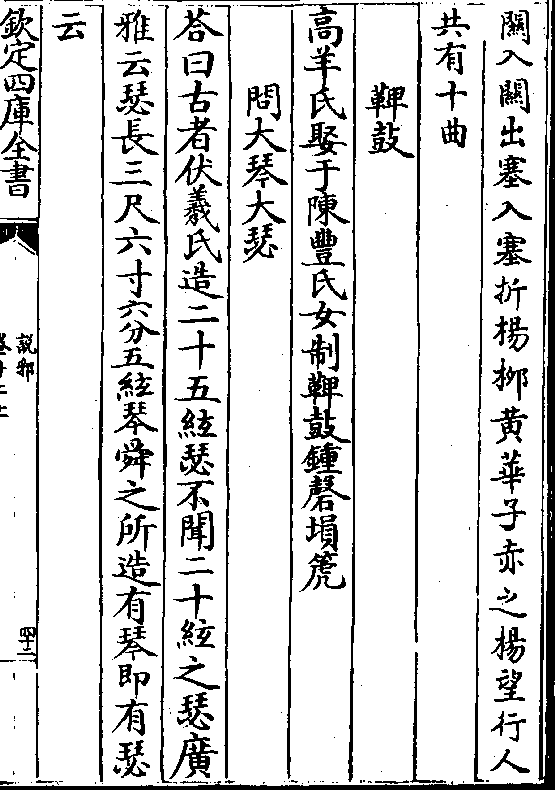 關入關出塞入塞折楊柳黄華子赤之楊望行人
共有十曲
鞞鼓
高羊氏娶于陳豐氏女制鞞鼓鍾磬塤箎
問大琴大瑟
荅曰古者伏羲氏造二十五絃瑟不聞二十絃之瑟廣
雅云瑟長三尺六寸六分五絃琴舜之所造有琴即有瑟
云
欽定四庫全書
說郛
四十二